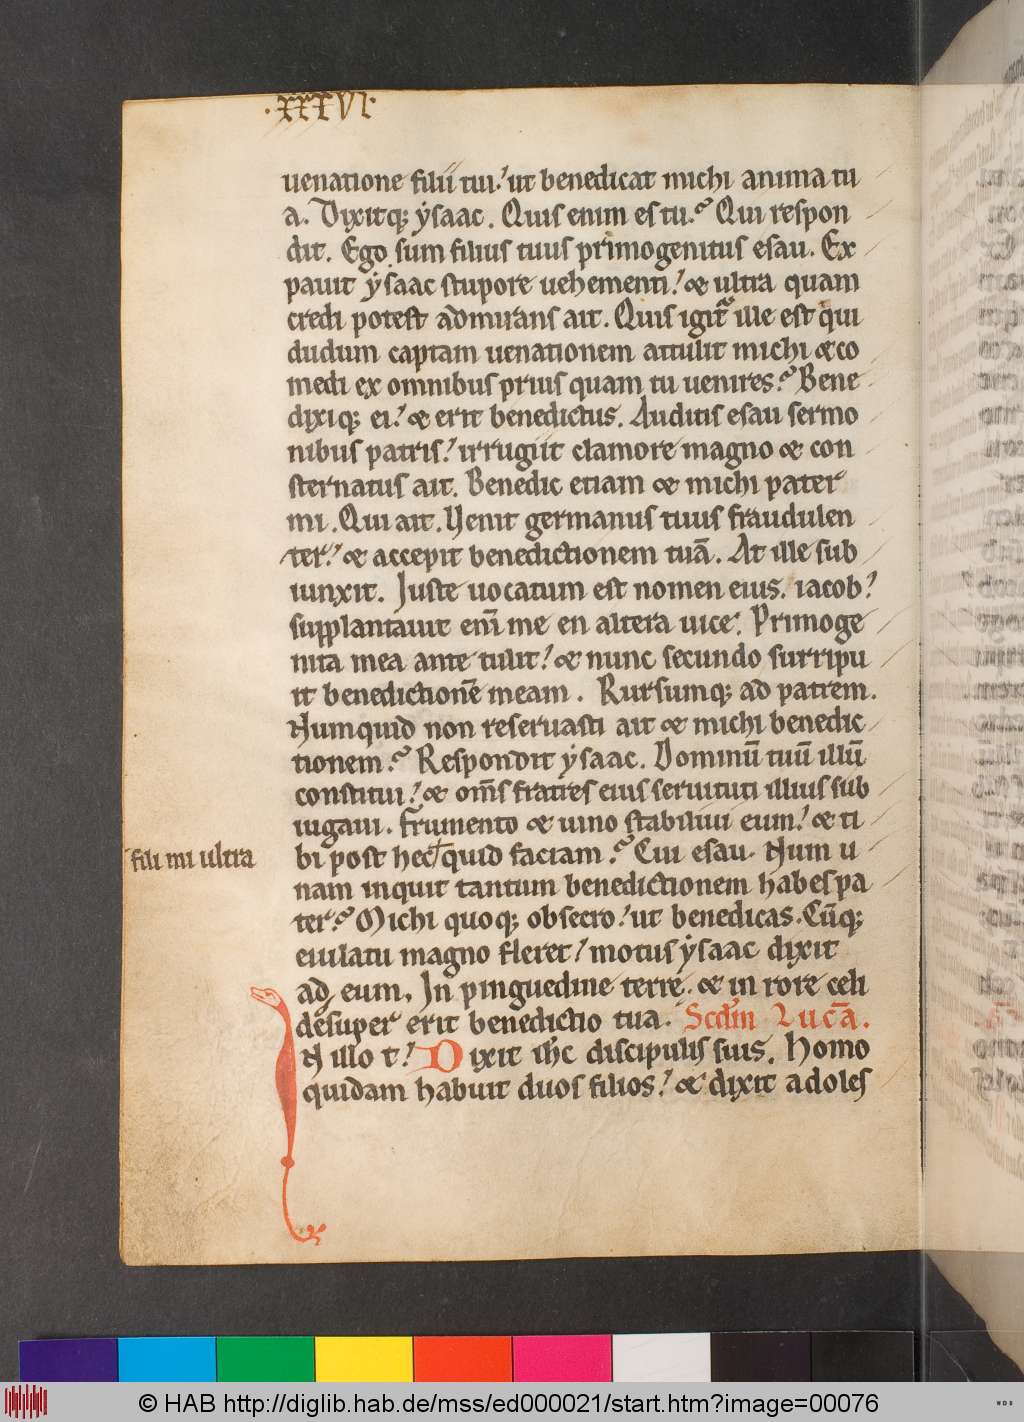 ·XXXVI·
uenatione filii tui. ut benedicat michi anima tu
a. Dixitq; ẏsaac. Quis enim es tu? Qui respon
dit. Ego sum filius tuus primogenitus esau. Ex
pauit ẏsaac stupore uehementi. & ultra quam
credi potest admirans ait. Quis igit᷑ ille est qui
dudum captam uenationem attulit michi & co
medi ex omnibus prius quam tu uenires? Bene
dixiq; ei. & erit benedictus. Auditis esau sermo
nibus patris. irrugiit clamore magno & con
sternatus ait. Benedic etiam & michi pater
mi. Qui ait. Uenit germanus tuus fraudulen
ter. & accepit benedictionem tuā. At ille sub
iunxit. Juste uocatum est nomen eius. iacob.
supplantauit eni̅ me en altera uice. Primoge
nita mea ante tulit. & nunc secundo surripu
it benedictionē meam. Rursumq; ad patrem.
Numquid non reseruasti ait & michi benedic
tionem? Respondit ẏsaac. Dominū tuū illū
constitui. & om̅s fratres eius seruituti illius sub
iugaui. frumento & uino stabiliui eum. & ti
fili mi ultra
bi post hec quid faciam? Cui esau. Num u
nam inquit tantum benedictionem habes pa
ter? Michi quoq; obsecro. ut benedicas. Cūq;
eiulatu magno fleret. motus ẏsaac dixit
ad eum. In pinguedine terre. & in rore celi
desuper erit benedictio tua. Scdm Lucā.
IN illo t. Dixit ih̅c discipulis suis. Homo
quidam habuit duos filios. & dixit adoles
© HAB http://diglib.hab.de/mss/ed000021/start.htm?image=00076